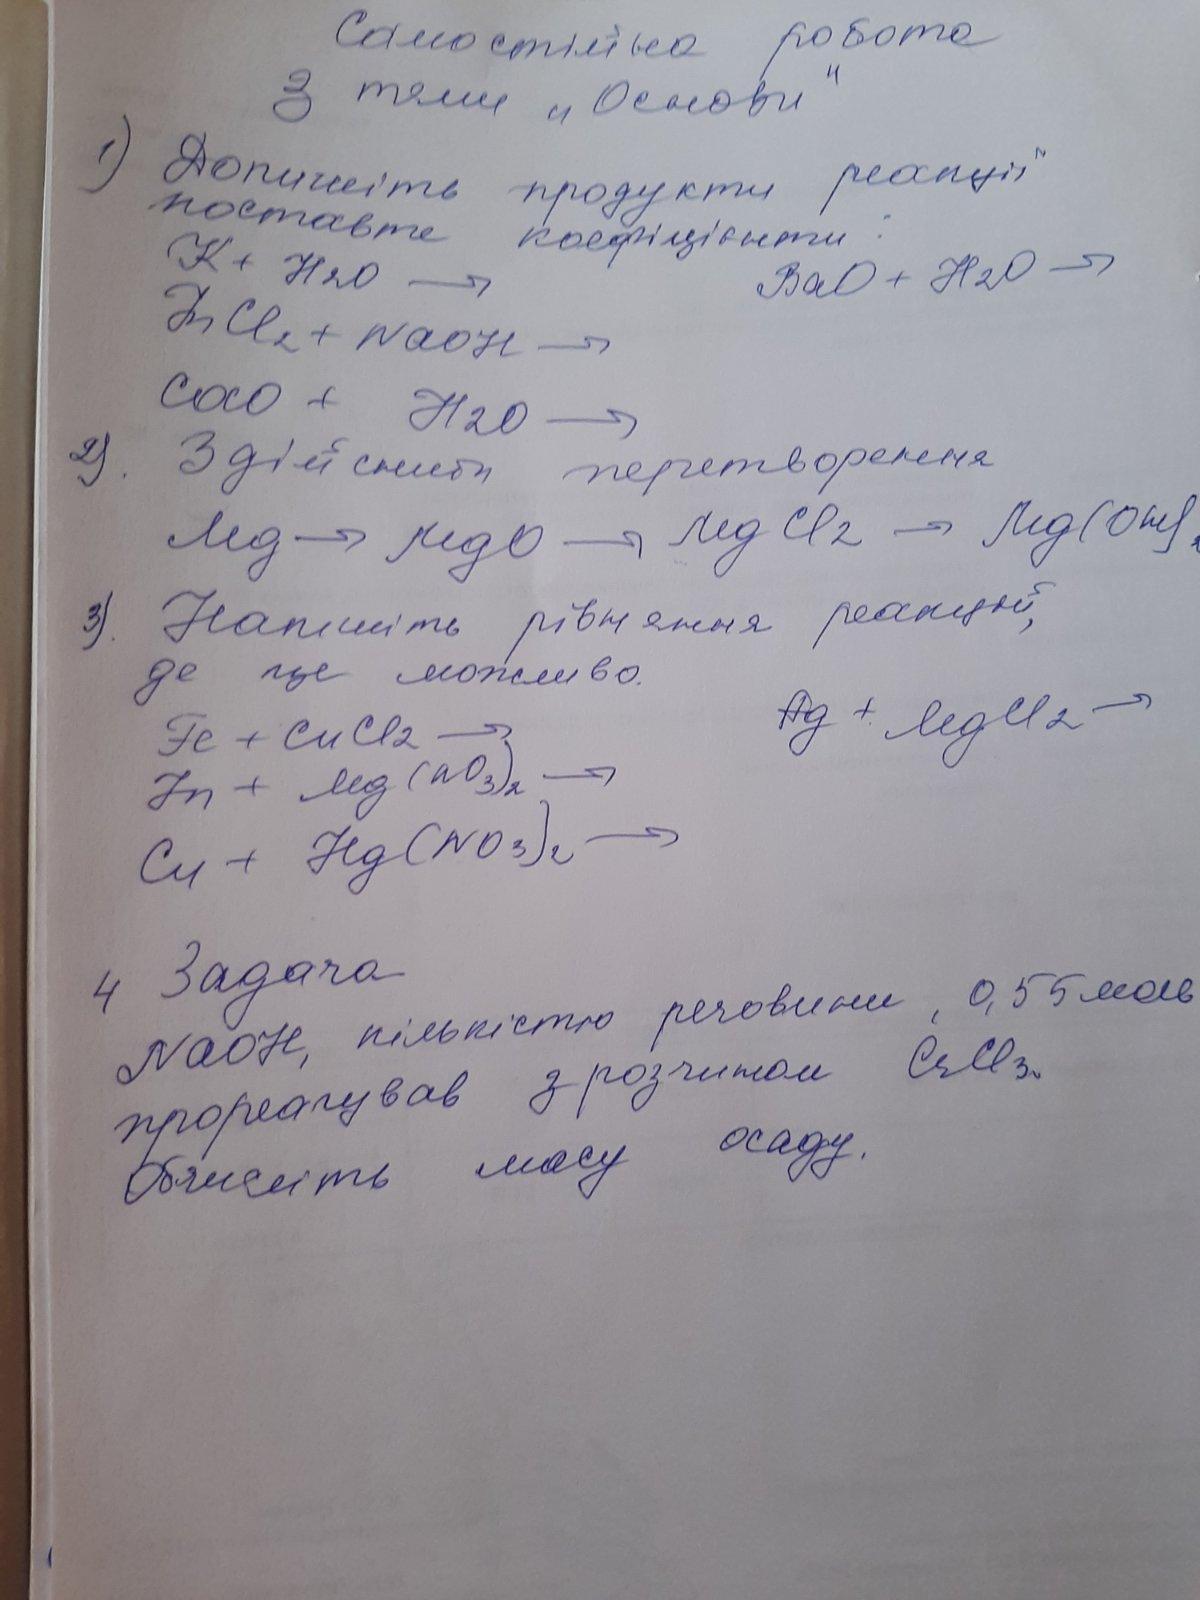 Самостійна робота
З теми „Основи"
1) Допишіть продукти реакції
поставте коефіцієнти:
K + H2O → BaO + H2O →
ZnCl2 + NaOH →
CaO + H2O →
2). Здійснити перетворення
Mg → MgO → MgCl2 → Mg(OH)2
3). Напишіть рівняння реакцій,
де це можливо.
Fe + CuCl2 → Ag + MgCl2 →
Zn + Mg(NO3)2 →
Cu + Hg(NO3)2 →
4 Задача
NaOH, кількістю речовини, 0,55 моль
прореагував з розчином CrCl3.
Обчисліть масу осаду.